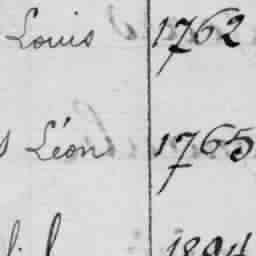 Louis 1762
Léon 1765
1804